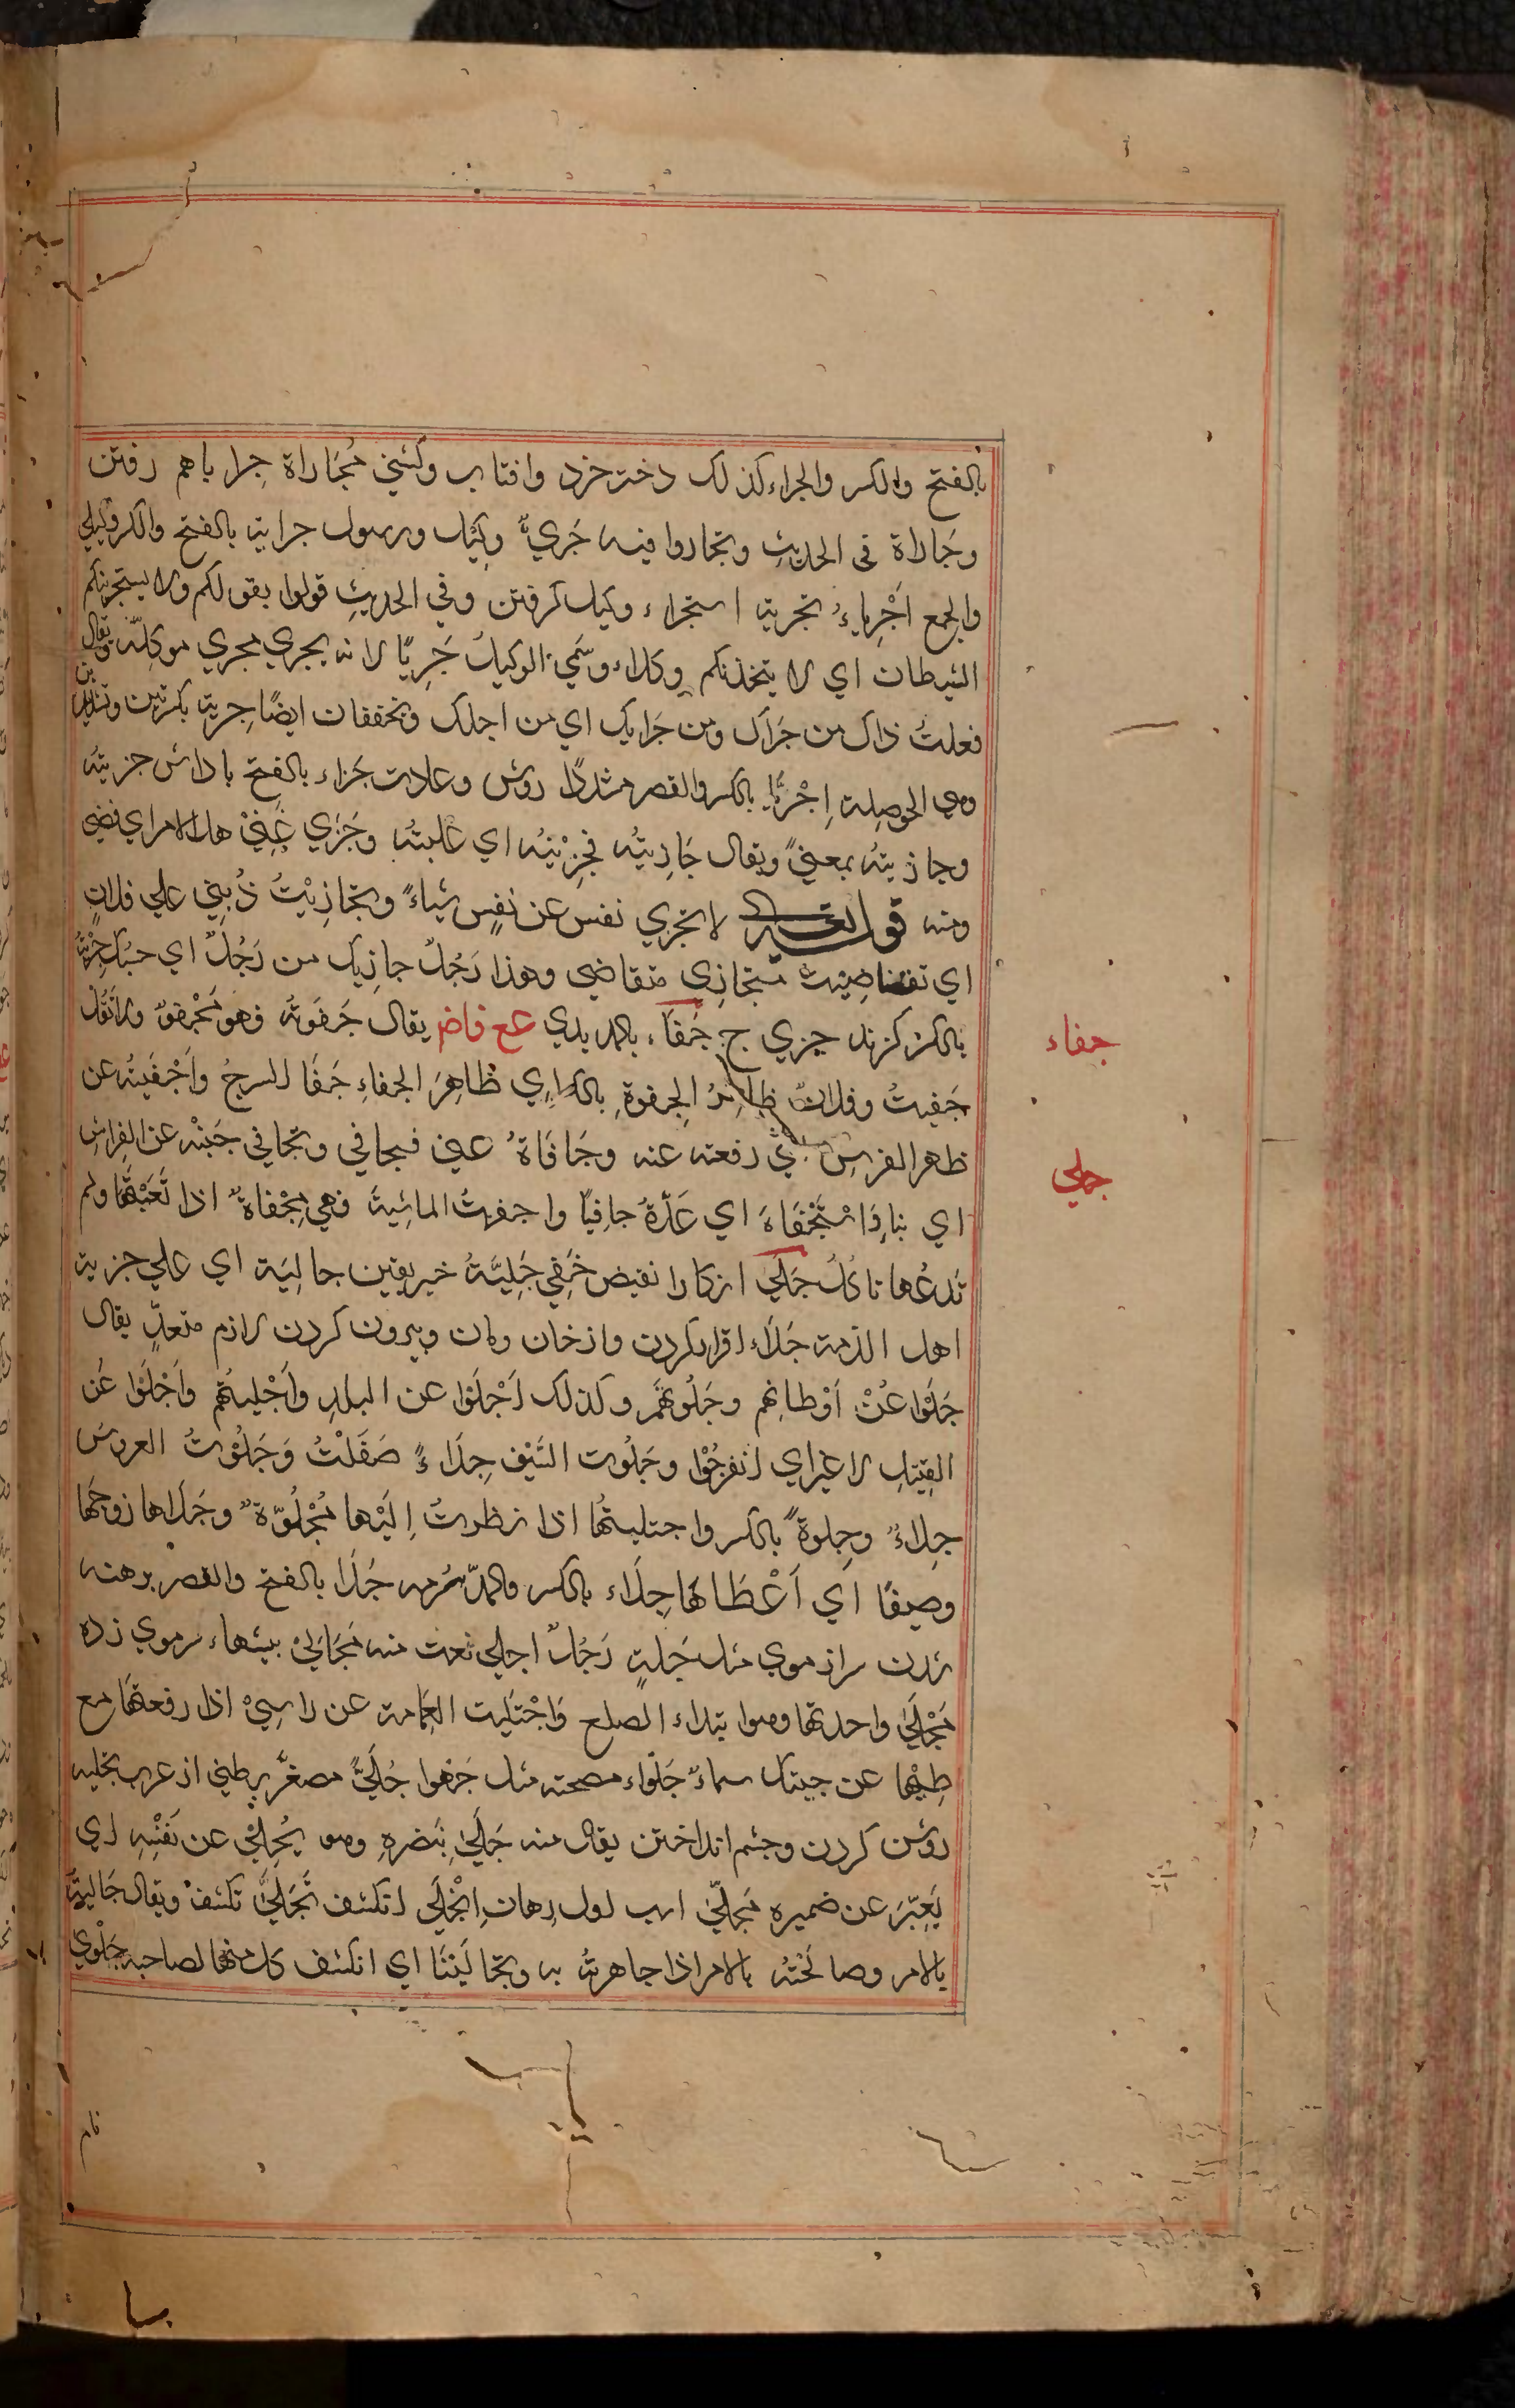 بالفتح والكسر والجراء كذلك دختر خرد وافتاب وكشتي مُجَاراة جِرا باهم رفتن
وجَاراة في الحديثِ وتجاروا فيه جَريٌّ وكيل ورسول جراية بالفتح والكسر وكيلي
والجمع اَجْرِياءُ تجرية استجراء وكيل كرفتن وفي الحديثِ قولوا بقولكم ولا يستجرينكم
الشيطان اي لا يتخذنكم وكلاء وسمّي الوكيلُ جَرِيًّا لانه يجري مجري موكلّه ويقال
فعلتُ ذاك من جَراك ومن جَرايك اي من اجلك وتخففان ايضًا جِرية بكسرتين وتشديدين
وهي الحوصِلة اِجْريّا بالكسر والقصر مشددًا روش وعادت جَزاء بالفتح باداش جزيتُه
وجازيتهُ بمعنيً ويقال جَازيتُه فجَزَيْتُه اي غلبتُه وجَزي عَنِّي هذا الامر اي قضي
ومنه قوله تعالى لا تجزي نفس عن نفسٍ شياءً وتجازيْتُ دُيني علي فلانٍ
اي تقاضيْت متجازي متقاضي وهذا رَجُلٌ جازيك من رَجُلٍ اي حسبك جِزْيَةٌ
بالكسر كزند جزي ج جَفَاء بالمد بدي مع فاضه يقال جَفَوتُه فهو مَجْفوّ ولا تَقُل
جَفيتُ وفلانٌ ظاهِرُ الجِفوةِ بالكسر اي ظاهِرَ الجفاءِ جَفَا السرجُ واَجْفَيتُه عن
ظهر الفرس اي رفعته عنه وجَافَاهُ عني فيجافي وتجافي جَنبُه عن الفراش
اي نبا واسْتَجْفَاهَ اي عَدَّهُ جافِيًا واجفيتُ الماشيةَ فهي مُجْفاةٌ اذا تَعَّبْتَها ولم
تَدعُها تاكلُ جَلي ازكارا نقيض خَفي جَليَّةُ خبر يقين جاليَة اي علي جزية
اهل الذّمة جَلَاء اقرار كردن واز خان ومان وبيرون كردن لازم متعدٍّ يقال
جَلَوْا عَنْ اَوْطانِهم وجَلَوْتُهُم وكذلك اَجْلَوْا عن البلدِ واَجْليتُهم واَجْلَوْا عَن
القتيلِ لا غير اي انفَرجُوْا وجَلَوت السَّيْف جِلَاءً صَقَلْتُ وَجَلَوْتُ العروس
جِلاءً وجِلوةً بالكسر واجتليتُها اذا نظرتُ اِلَيْها مَجْلُوّة وجَلَاها زوجُها
وصيفًا اي اَعْطَاها جِلَاء بالكسر والمدّ سُرمه جَلَا بالفتح والقصر برهنه
شدن سر از موي مثل جَلهٍ رَجُلٌ اجلي نعت منه مَجَاليْ بيشهاء سر موي زده
مَجْلَيٰ واحدتها وهوا بتداء الصلع وَاجْتَليت العمامة عن راسيْ اذا رفعتَها مع
طيّها عن جبينك سماءٌ جَلواء مصحته مثل جَهوا جُلَيٌّ مصغّر بطني از عرب تجليه
روشن كردن وجشم انداختن يقال منه جَلّيٰ بِبَصَرِهِ وهو يُجلّي عن نَفْسِه اي
يَعبّر عن ضميره مُجلّيٌ اسب اول رهان اِنْجَليٰ انكشف تَجَليٰ تكشّف ويقال جَاليتُه
بالامر وصالحتُه بالامر اذا جاهرتُه به وتجاليْنَا اي انكشف كل منهما لصاحبه جَلْوي
جفاء
جلي